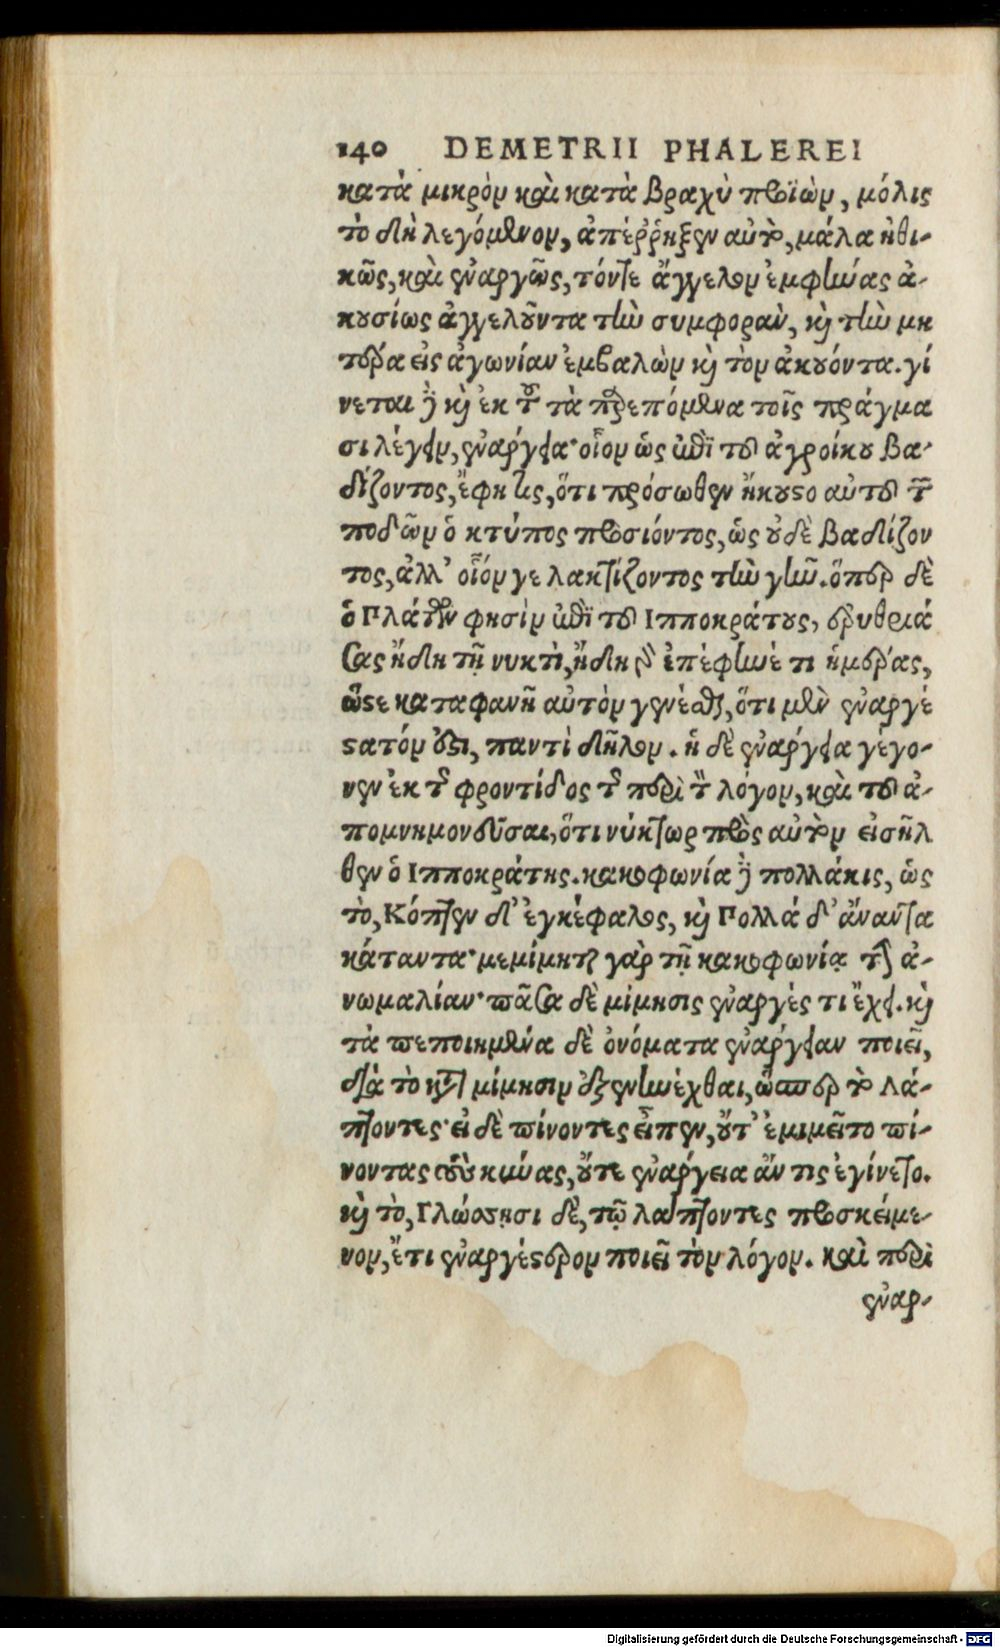 140 DEMETRII PHALEREI
κατὰ μικρὸν καὶ κατὰ βραχὺ προϊὼν, μόλις
τὸ δὴ λεγόμενον, ἀπέῤῥηξεν αὐτὸ, μάλα ἠθι-
κῶς, καὶ ἐναργῶς, τόντε ἄγγελον ἐμφήνας ἀ-
κουσίως ἀγγελοῦντα τὴν συμφορὰν, καὶ τὴν μη
τέρα εἰς ἀγωνίαν ἐμβαλὼν καὶ τὸν ἀκούοντα. γί
νεται δὲ καὶ ἐκ τοῦ τὰ παρεπόμενα τοῖς πράγμα
σι λέγειν, ἐνάργεια· οἷον ὡς ἐπὶ τοῦ ἀγροίκου βα-
δίζοντος, ἔφη τις, ὅτι πρόσωθεν ἤκουστο αὐτοῦ τῶν
ποδῶν ὁ κτύπος προσιόντος, ὡς οὐδὲ βαδίζον
τος, ἀλλ' οἷόν γε λακτίζοντος τὴν γῆν. ὅπερ δὲ
ὁ Πλάτων φησὶν ἐπὶ τοῦ Ιπποκράτους, ἐρυθριά
σας ἤδη τῇ νυκτὶ, ἤδη γὰρ ἐπέφηνέ τι ἡμέρας,
ὥστε καταφανῆ αὐτὸν γενέσθαι, ὅτι μὲν ἐναργέ
στατόν ἐστι, παντὶ δῆλον. ἡ δὲ ἐνάργεια γέγο-
νεν ἐκ τῆς φροντίδος τῆς περὶ τὸν λόγον, καὶ τοῦ ἀ-
πομνημονεῦσαι, ὅτι νύκτωρ πρὸς αὐτὸν εἰσῆλ
θεν ὁ Ιπποκράτης. κακοφωνία δὲ πολλάκις, ὡς
τὸ, Κόπτεν δ' ἐγκέφαλος, καὶ Πολλά δ' ἄναντα
κάταντα· μεμίμηται γὰρ τῇ κακοφωνίᾳ τὴν ἀ-
νωμαλίαν· πᾶσα δὲ μίμησις ἐναργές τι ἔχει. καὶ
τὰ πεποιημένα δὲ ὀνόματα ἐνάργειαν ποιεῖ,
διὰ τὸ κατὰ μίμησιν ἐξενηνέχθαι, ὥσπερ τὸ λά-
πτοντες· εἰ δὲ πίνοντες εἶπεν, οὔτ' ἐμιμεῖτο πί-
νοντας τοὺς κύνας, οὔτε ἐνάργεια ἄν τις ἐγίνετο.
καὶ τὸ, Γλώσσησι δὲ, τῷ λάπτοντες προσκείμε-
νον, ἔτι ἐναργέστερον ποιεῖ τὸν λόγον. καὶ περὶ
ἐναρ-
Digitalisierung gefördert durch die Deutsche Forschungsgemeinschaft - DFG